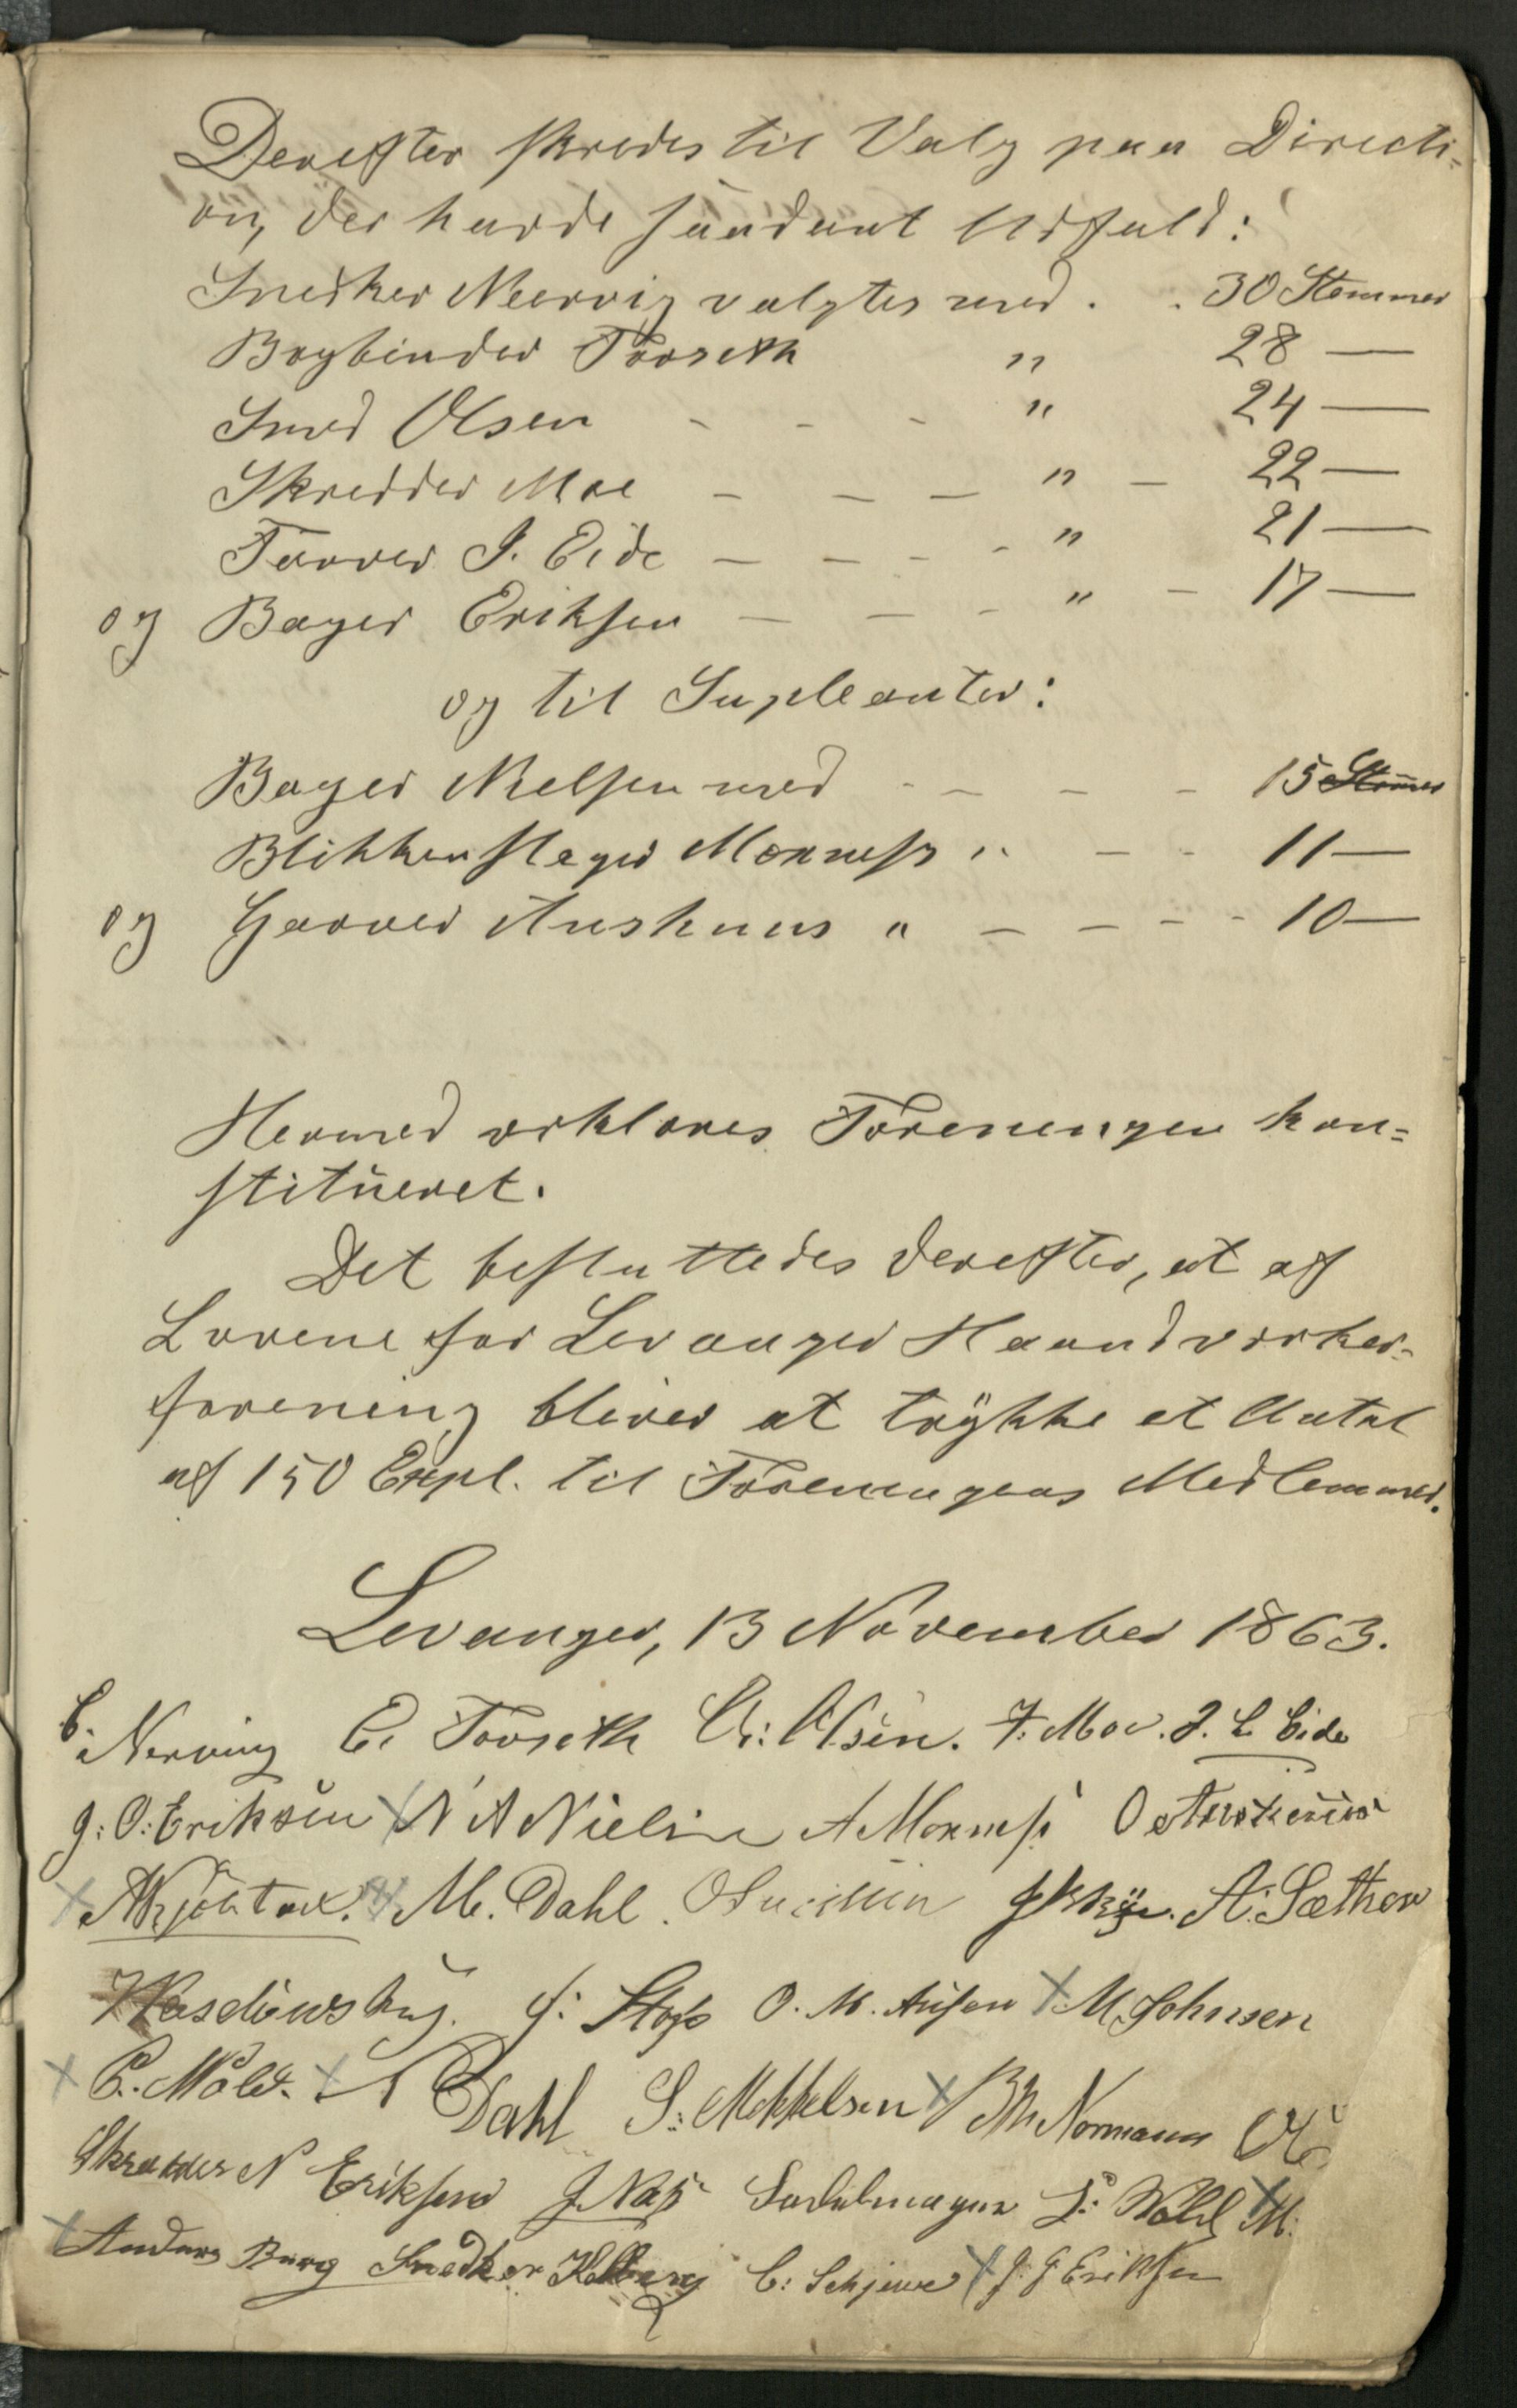 Derefter skredes til Valg paa Directi-
on, der havde saadant Udfald:
Snedker Neervig valgtes med . . 30 Stemmer
Bogbinder Forseth " 28 —
Smed Olsen - - - " 24 —
Skredder Moe — — — " — 22 —
Farver J. Eide — — - - " 21 —
og Bager Eriksen — — - " - 17 —
og til Supleanter:
Bager Nielsen med - - - - 15 Stemmer
Blikkenslager Monness " — - 11 —
og Garver Aushuus " — — - - 10 —
Hermed erklæres Foreningen kon=
stitueret.
Det besluttedes derefter, at af
Lovene for Levanger Haandværker-
forening bliver at trykke et Antal
af 150 Expl. til Foreningens Medlemmer.
Levanger, 13 November 1863.
C. Nerving E. Forseth Ch: Olsen. F. Moe. J. L Eide
J: O: Eriksen N A Nielsen A Monness O Aushuus
M. Dahl. A. Sæther
J: Stop O. M. M Johnsen
P. Mold. N Dahl S: Mikkelsen Normann
Skrædder N Eriksen J Næss Sadelmager L: Wold M.
Anders Berg Snedker C: Schjewe J. G Eriksen